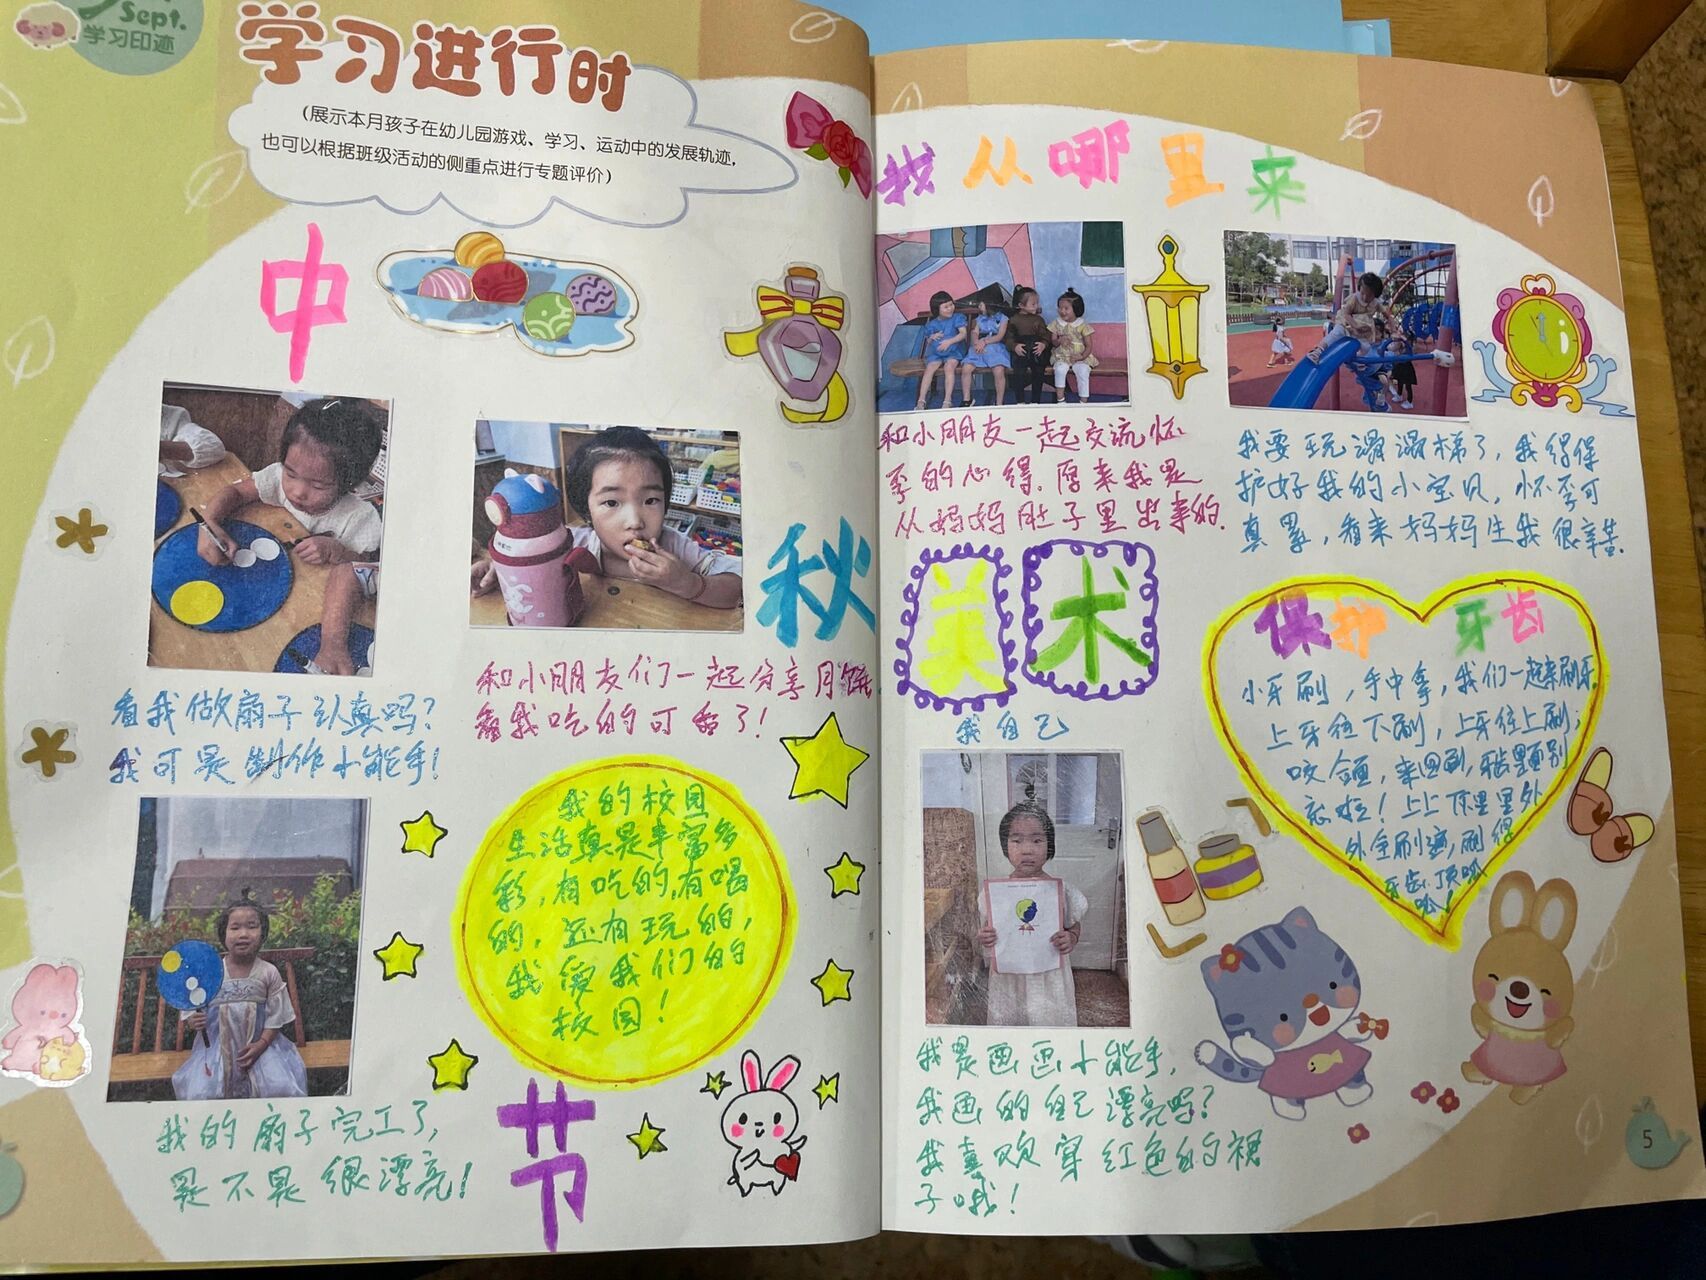 Sept.
学习印迹
学习进行时
(展示本月孩子在幼儿园游戏、学习、运动中的发展轨迹,
也可以根据班级活动的侧重点进行专题评价)
中
秋
节
看我做扇子认真吗?
我可是制作小能手!
和小朋友们一起分享月饼
看我吃的可香了!
我的校园
生活真是丰富多
彩,有吃的,有喝
的,还有玩的,
我爱我们的
校园!
我的扇子完工了,
是不是很漂亮!
我从哪里来
和小朋友一起交流怀
孕的心得.原来我是
从妈妈肚子里出来的.
我要玩滑滑梯了,我得保
护好我的小宝贝,怀孕可
真累,看来妈妈生我很辛苦.
美术
我自己
我是画画小能手,
我画的自己漂亮吗?
我喜欢穿红色的裙
子哦!
保护牙齿
小牙刷,手中拿,我们一起来刷牙.
上牙往下刷,下牙往上刷;
咬合面,来回刷,里面别
忘啦!上上下下里里外
外全刷遍,刷得
牙齿顶呱
呱!
5